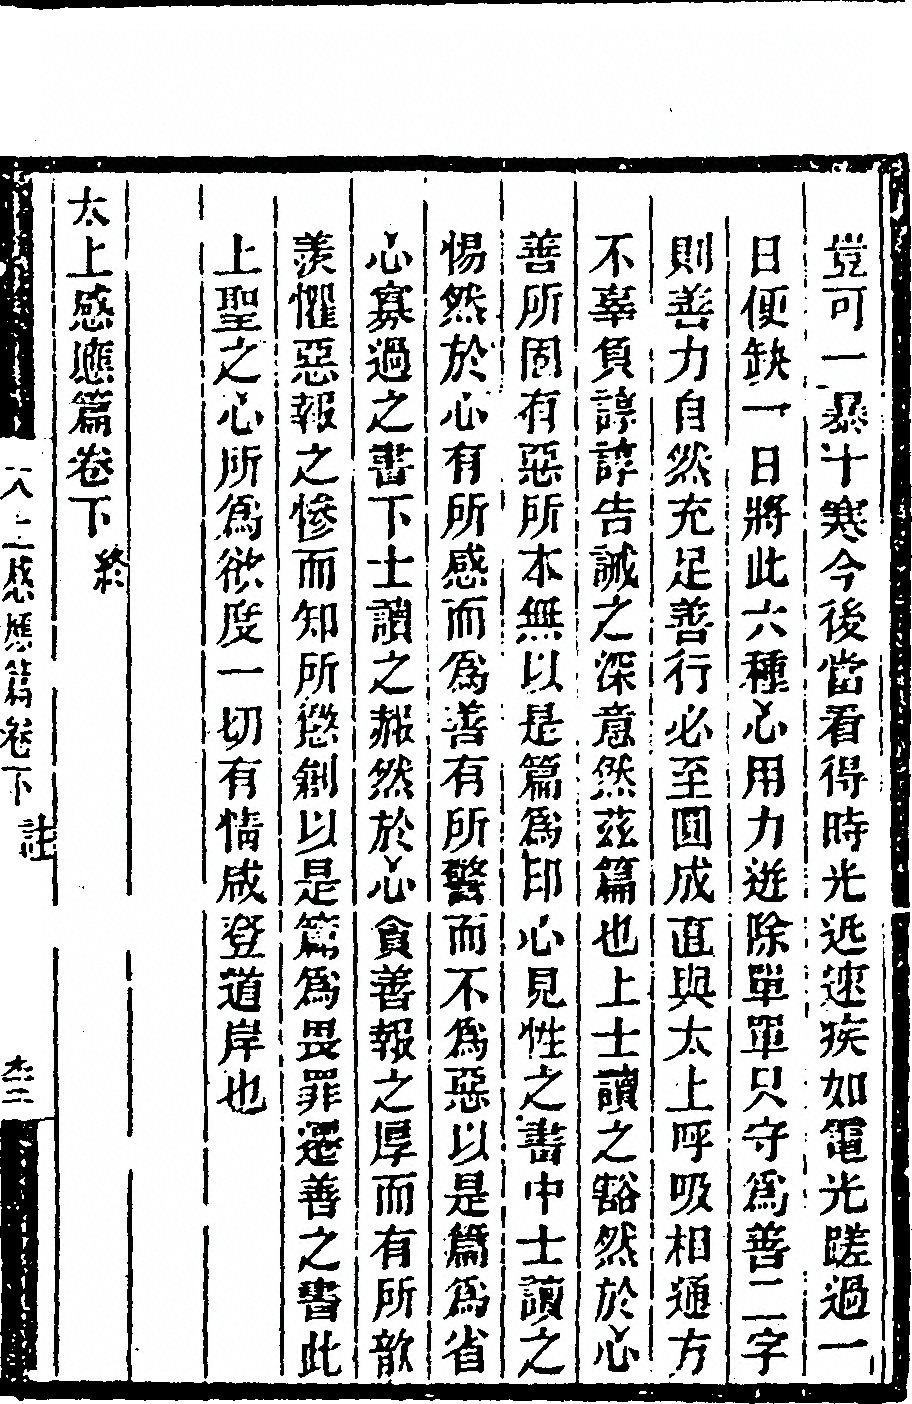 豈可一暴十寒今後當看得時光迅速疾如電光蹉過一
日便缺一日將此六種心用力遊除單單只守爲善二字
則善力自然充足善行必至圓成直與太上呼吸相通方
不辜負諄諄告誡之深意然茲篇也上士讀之豁然於心
善所固有惡所本無以是篇爲印心見性之書中士讀之
惕然於心有所感而爲善有所警而不爲惡以是篇爲省
心寡過之書下士讀之赧然於心貪善報之厚而有所歆
羨懼惡報之慘而知所懲創以是篇爲畏罪遷善之書此
上聖之心所爲欲度一切有情咸登道岸也
太上感應篇卷下 終
太上感應篇卷下 註